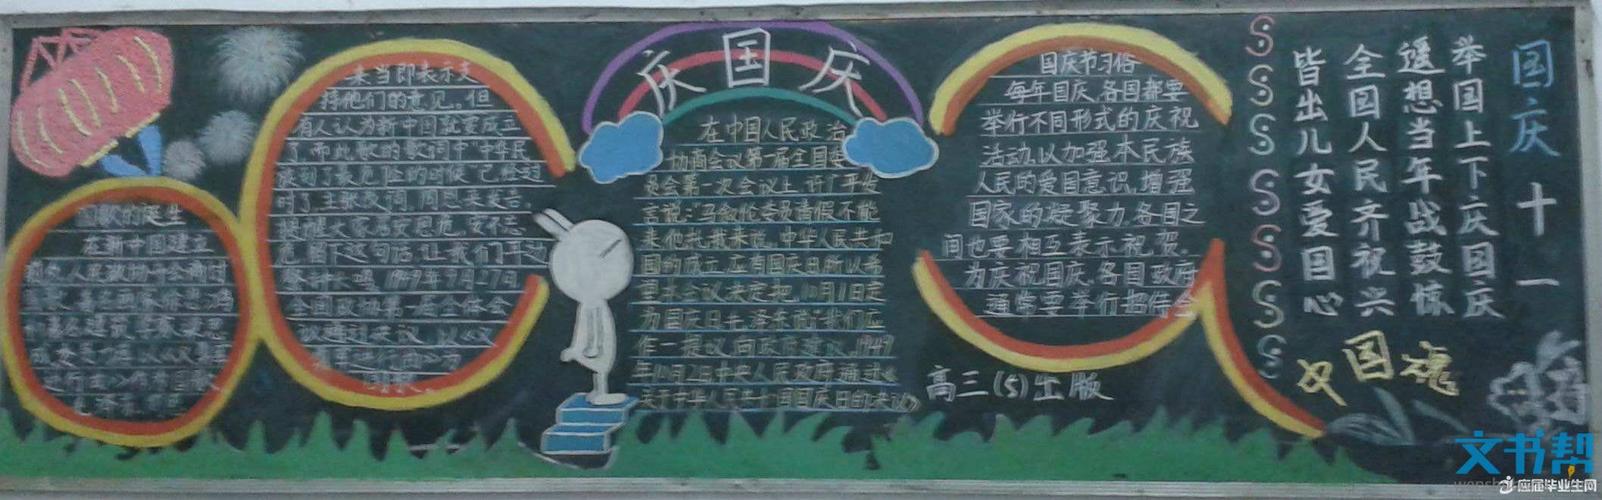 国歌的诞生
在新中国建立
来当即表示支
持他们的意见。但
有人认为新中国就要成立
了,而此歌的歌词中"中华民
族到了最危险的时候"已经过
时了,主张改词,周恩来发言。
提醒大家居安思危,安不忘
危,留下这句话,让我们耳边
警钟长鸣,1949年9月27日
全国政协第一届全体会
国歌。
庆国庆
在中国人民政治
协商会议第一届全国委
员会第一次会议上,许广平发
言说:马叙伦委员请假不能
来他托我来说,中华人民共和
国的成立,应有国庆日所以希
望本会议决定把10月1日定
为国庆日毛泽东说:我们应
作一提议,向政府建议,1949
年10月2日中央人民政府通过《
关于中华人民共和国国庆日的决议》
国庆节习俗
每年国庆,各国都要
举行不同形式的庆祝
活动,以加强本民族
人民的爱国意识,增强
国家的凝聚力,各国之
间也要相互表示祝贺。
为庆祝国庆,各国政府
通常要举行招待会
高三(5)出版
国庆十一
举国上下庆国庆
遥想当年战鼓惊
全国人民齐祝兴
皆出儿女爱国心
中国魂
文书帮
应届毕业生网